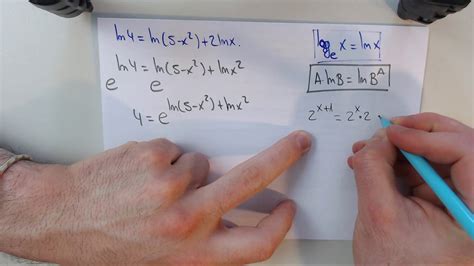 ln4 = ln(5-x²)+2lnx.
ln4 = ln(5-x²)+lnx²
e e
4 = e^ln(5-x²)+lnx²
log_e x = lnx
A·lnB = lnB^A
2^x+1 = 2^x·2